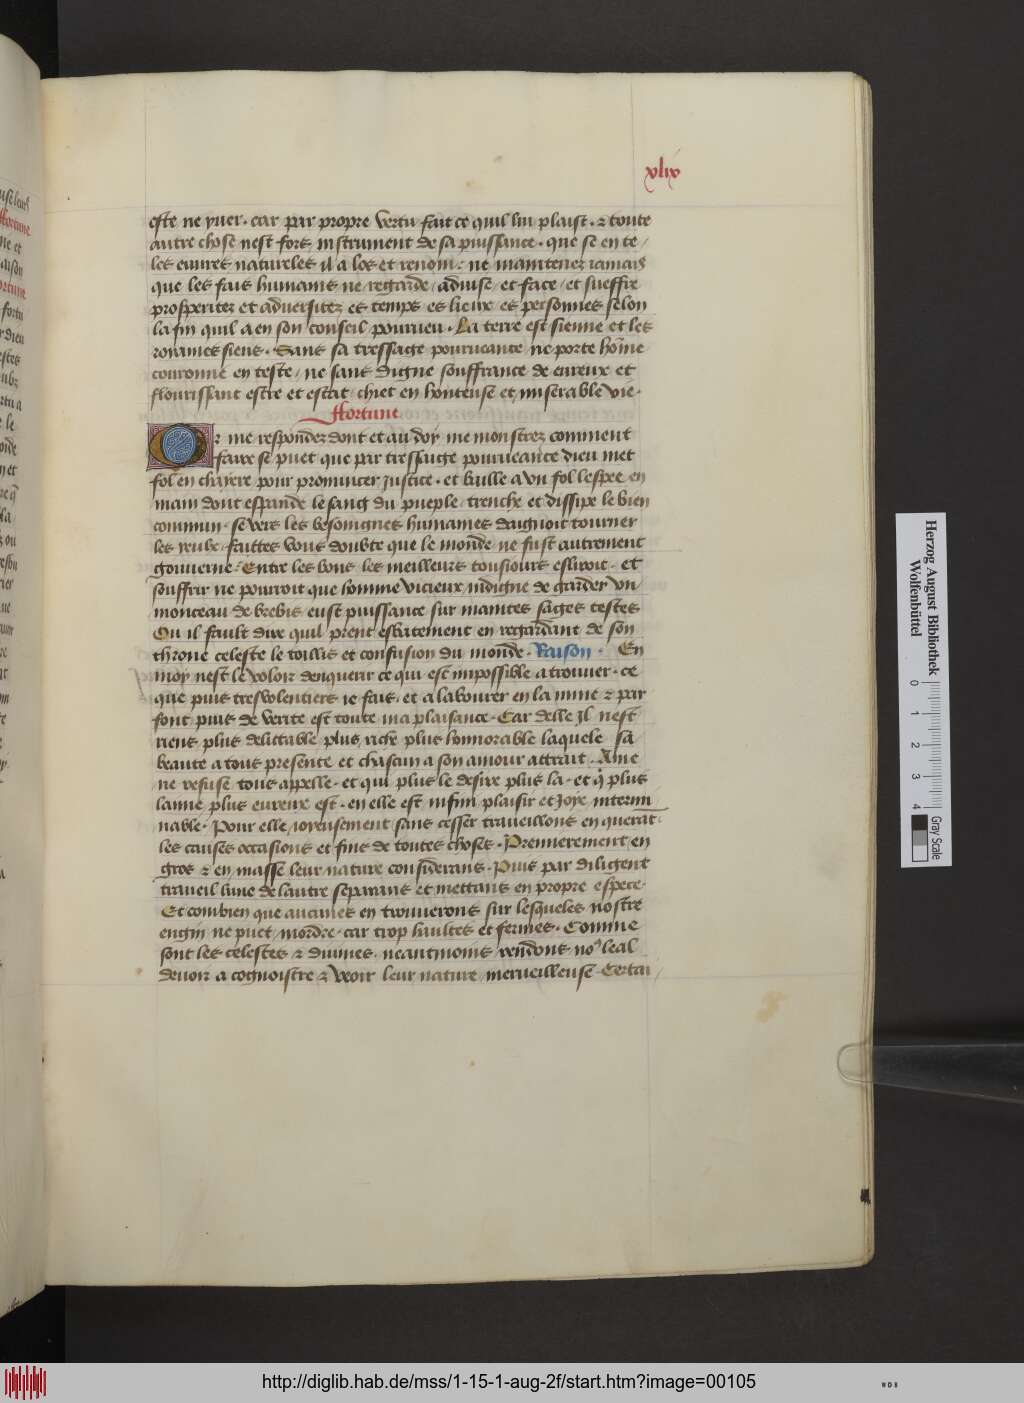 xlix
este ne yuer. car par propre vertu fait ce quil lui plaist. & toute
autre chose nest fors instrument de sa puissance. que se en te/
les euures natureles il a los et renom: ne maintenez iamais
que les fais humains ne regarde/ aduise/ et face/ et sueffre
prosperitez et aduersitez es temps es lieux es personnes selon
la fin quil a en son conseil pourueu. La terre est sienne et les
roiaumes siens. Sans sa tressage pourueance ne porte hōme
couronne en teste/ ne sans digne souffrance de eureux et
flourissant estre et estat/ chiet en honteuse et miserable vie.
ffortune
Or me respondez dont et au doy me monstrez comment
faire se puet que par tressaige pourueance dieu met
fol en chayere pour prononcer justice. et baille a vn fol lespee en
main dont espande le sang du pueple/ trenche et dissipe le bien
commun. se vers les besoingnes humaines daignoit tourner
les yeulx. faittes vous doubte que le monde ne fust autrement
gouuerne. Entre les bons les meilleurs tousiours esliroit. et
souffrir ne pourroit que homme vicieux indigne de garder vn
monceau de brebis eust puissance sur maintes sages testes
Ou il fault dire quil prent esbatement en regardant de son
throne celeste le toullis et confusion du monde. Raison. En
moy nest le voloir denquerir ce qui est impossible a trouuer. ce
que puis tresvolentiers ie fais. et a labourer en la mine & par
font puis de verite est toute ma plaisance. Car delle Il nest
riens plus delittable plus riche plus honnorable laquele sa
beaute a tous presente et chascun a son amour attrait. Ame
ne refuse tous appelle. et qui plus le desire plus la. et q̇ plus
laime plus eureux est. en elle est infini plaisir et joye intermi
nable. Pour elle ioyeusement sans cesser traueillons en querāt.
les causes occasions et fins de toutes choses. Premierement en
gros & en masse leur nature considerans. Puis par diligent
traueil lune de lautre separans et mettans en propre espece.
Et combien que aucunes en trouuerons sur lesqueles nostre
engin ne puet mordre. car trop haultes et fermes. Comme
sont les celestes & diuines. neantmoins rendons noꝰ leal
deuoir a cognoistre & veoir leur nature merueilleuse. Certai/
Herzog August Bibliothek
Wolfenbüttel
0 1 2 3 4
Gray Scale
http://diglib.hab.de/mss/1-15-1-aug-2f/start.htm?image=00105